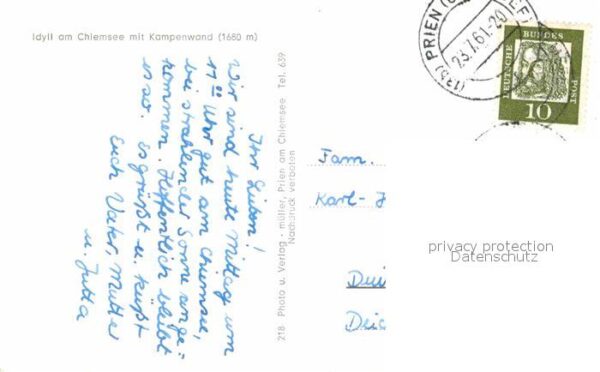 Idyll am Chiemsee mit Kampenwand (1680 m)
Ihr Lieben!
Wir sind heute Mittag um
17 Uhr gut am Chiemsee,
bei strahlender Sonne ange=
kommen. Hoffentlich bleibt
es so. Es grüßt u. küßt
Euch Vater, Mutter
u. Jutta
218 Photo u. Verlag - müller, Prien am Chiemsee Tel. 639
Nachdruck verboten
(13b) PRIEN (
23.7.61-20
DEUTSCHE BUNDES POST
10
Fam.
Karl-
privacy protection
Datenschutz